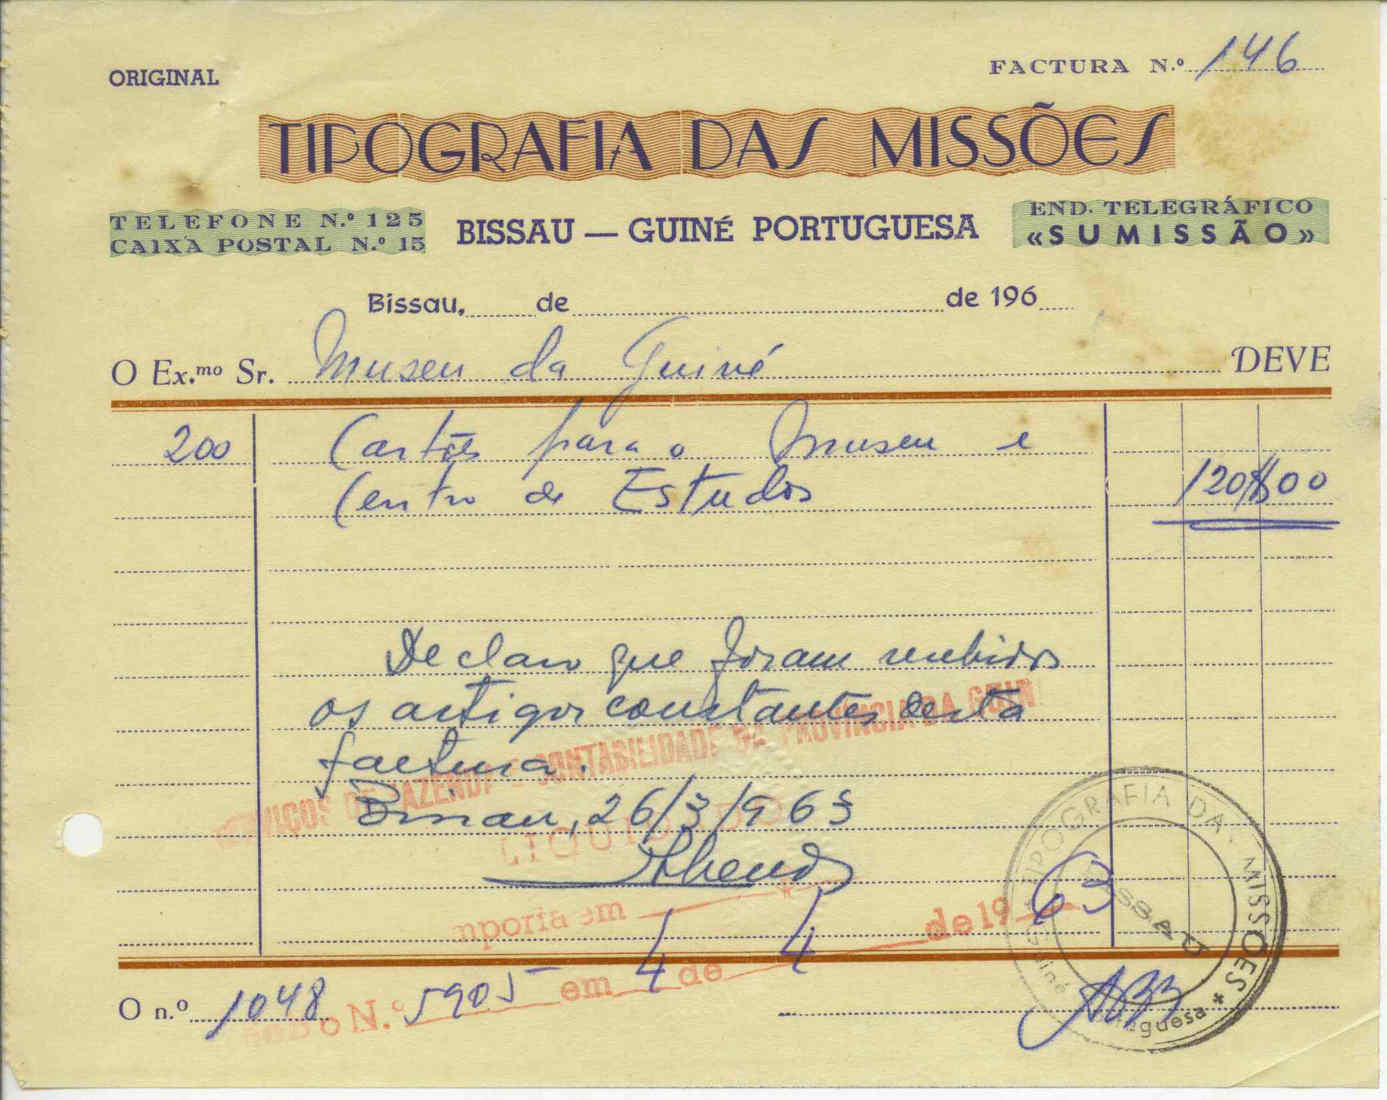 ORIGINAL
FACTURA N.º 146
TIPOGRAFIA DAS MISSÕES
TELEFONE N.º 125
CAIXA POSTAL N.º 15
BISSAU — GUINÉ PORTUGUESA
END. TELEGRÁFICO
«SUMISSÃO»
Bissau, de de 196
O Ex.mo Sr. Museu da Guiné DEVE
200 Cartões para o Museu e
Centro de Estudos 120$00
Declaro que foram recebidos
os artigos constantes desta
factura.
Bissau, 26/3/963
SERVIÇOS DE FAZENDA E CONTABILIDADE DA PROVÍNCIA DA GUIN
LIQUIDADO
mporta em
de 1963
O n.º 1048
o N.º 5905 em 4 de 4
TIPOGRAFIA DAS MISSÕES
BISSAU
Guiné Portuguesa